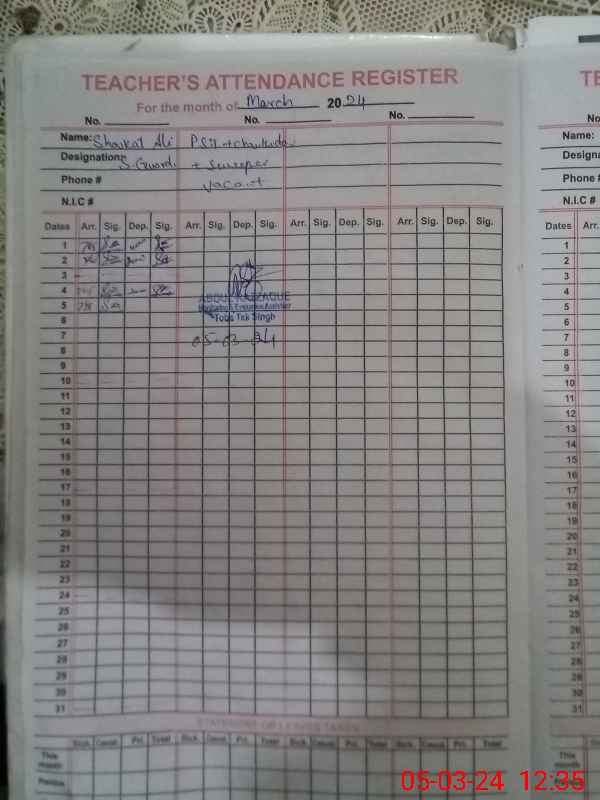 TEACHER'S ATTENDANCE REGISTER
For the month of March 2024
No. No. No.
Name: Shoukat Ali PST + Chowkidar
Designation: S. Guard + Sweeper
Phone # vacant
N.I.C #
Dates Arr. Sig. Dep. Sig. Arr. Sig. Dep. Sig. Arr. Sig. Dep. Sig. Arr. Sig. Dep. Sig.
1
2
3
4
5
6
7
8
9
10
11
12
13
14
15
16
17
18
19
20
21
22
23
24
25
26
27
28
29
30
31
ABDUL RAZZAQUE
Toba Tek Singh
05-03-24
STATEMENT OF LEAVES TAKEN
Sick. Casual. Pri. Total Sick. Cau. Pri. Total Sick. Cau. Pri. Total Sick. Cau. Pri. Total
This month
Previous
TE
No.
Name:
Designa
Phone #
N.I.C #
Dates Arr.
1
2
3
4
5
6
7
8
9
10
11
12
13
14
15
16
17
18
19
20
21
22
23
24
25
26
27
28
29
30
31
This month
05-03-24 12:35